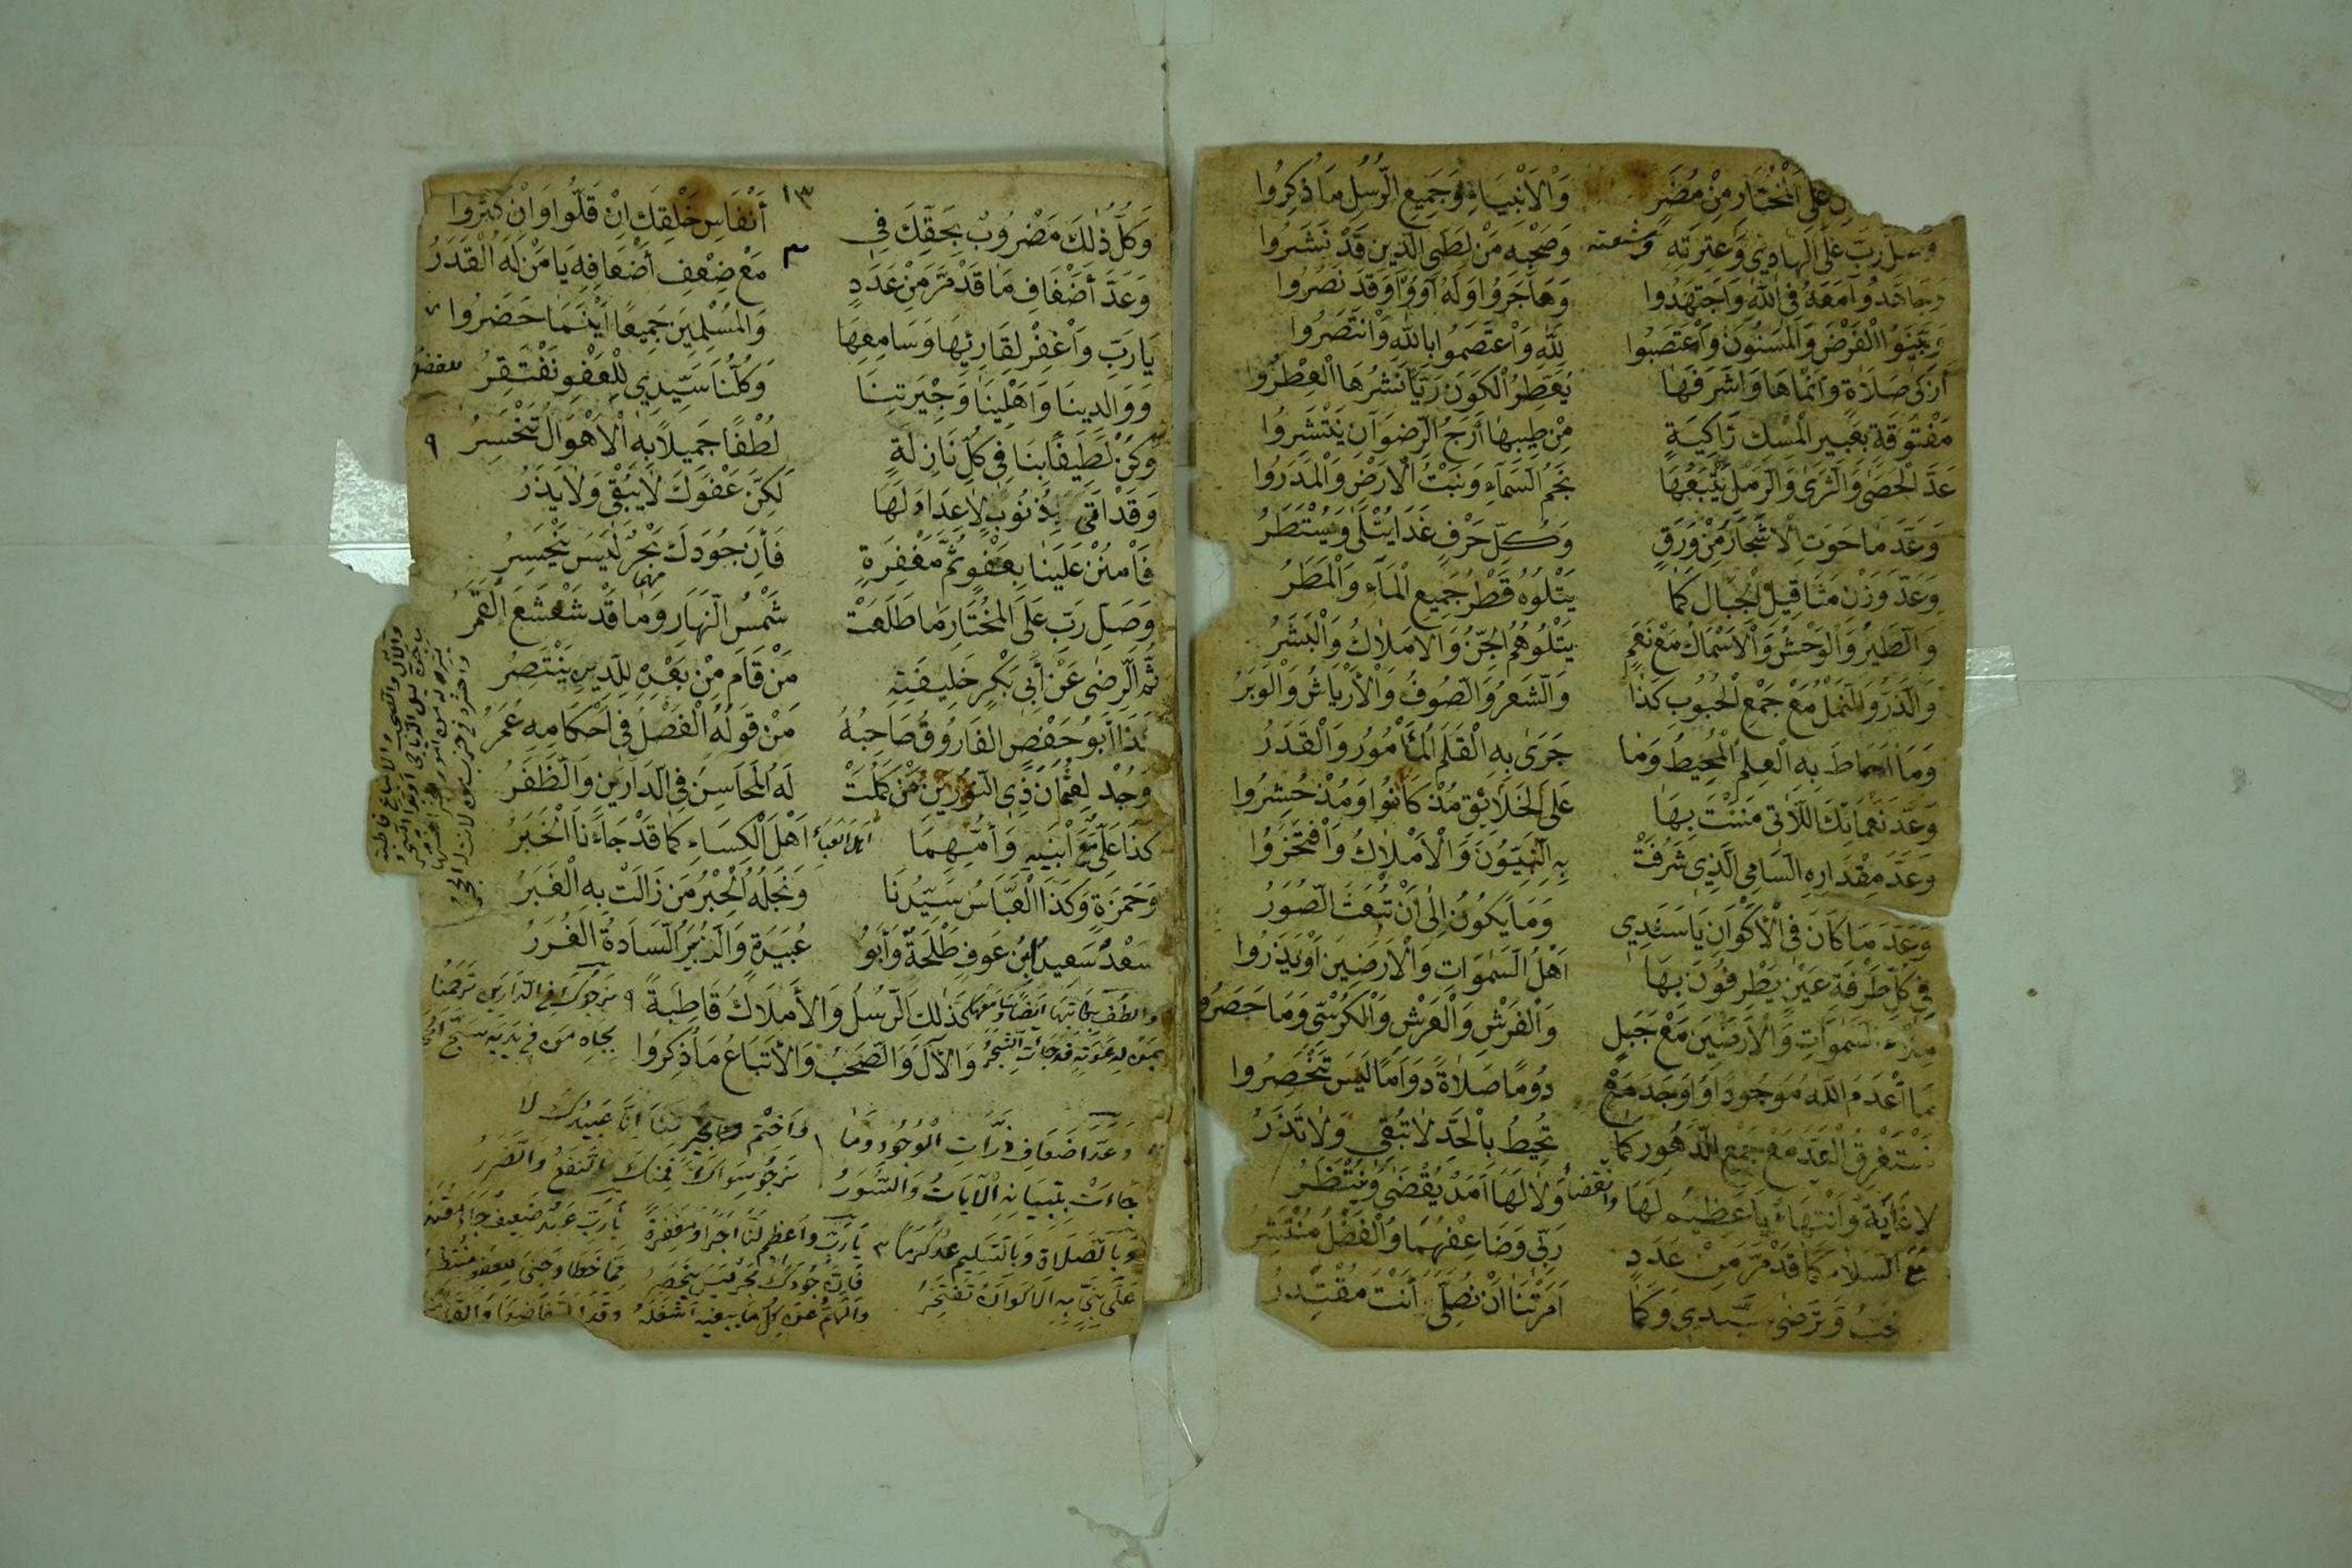 عَلَى الْمُخْتَارِ مِنْ مُضَرٍ وَالْأَنْبِيَاءِ وَجَمِيعِ الرُّسُلِ مَا ذُكِرُوا
وَصَلِّ رَبِّ عَلَى الْهَادِي وَعِتْرَتِهِ وشيعته وَصَحْبِهِ مَنْ لِطَيِّ الدِّينِ قَدْ نَشَرُوا
وَجَاهَدُوا مَعَهُ فِي اللَّهِ وَاجْتَهَدُوا وَهَاجَرُوا وَلَهُ آوَوْا وَقَدْ نَصَرُوا
وَبَيَّنُوا الْفَرْضَ وَالْمَسْنُونَ وَاعْتَصَبُوا لِلَّهِ وَاعْتَصَمُوا بِاللَّهِ وَانْتَصَرُوا
أَزْكَى صَلَاةٍ وَأَنْمَاهَا وَأَشْرَفَهَا يُعَطِّرُ الْكَوْنَ رَيَّا نَشْرِهَا الْعِطْرُوا
مَفْتُوقَةٍ بِعَبِيرِ الْمِسْكِ زَاكِيَةٍ مِنْ طِيبِهَا أَرَجُ الرِّضْوَانِ يَنْتَشِرُوا
عَدَّ الْحَصَى وَالثَّرَى وَالرَّمْلِ يَتْبَعُهَا نَجْمُ السَّمَاءِ وَنَبْتُ الْأَرْضِ وَالْمَدَرُوا
وَعَدَّ مَا حَوَتِ الْأَشْجَارُ مِنْ وَرَقٍ وَكُلِّ حَرْفٍ غَدَا يُتْلَى وَيُسْتَطَرُ
وَعَدَّ وَزْنِ مَثَاقِيلِ الْجِبَالِ كَمَا يَتْلُوهُ قَطْرُ جَمِيعِ الْمَاءِ وَالْمَطَرُ
وَالطَّيْرُ وَالْوَحْشُ وَالْأَسْمَاكُ مَعْ نَعَمٍ يَتْلُوهُمُ الْجِنُّ وَالْأَمْلَاكُ وَالْبَشَرُ
وَالذَّرُّ وَالنَّمْلُ مَعْ جَمْعِ الْحُبُوبِ كَذَا وَالشَّعْرُ وَالصُّوفُ وَالْأَرْيَاشُ وَالْوَبَرُ
وَمَا أَحَاطَ بِهِ الْعِلْمُ الْمُحِيطُ وَمَا جَرَى بِهِ الْقَلَمُ الْمَأْمُورُ وَالْقَدَرُ
وَعَدَّ نَعْمَائِكَ اللَّاتِي مَنَنْتَ بِهَا عَلَى الْخَلَائِقِ مُذْ كَانُوا وَمُذْ حُشِرُوا
وَعَدَّ مِقْدَارِهِ السَّامِي الَّذِي شَرُفَتْ بِهِ النَّبِيُّونَ وَالْأَمْلَاكُ وَافْتَخَرُوا
وَعَدَّ مَا كَانَ فِي الْأَكْوَانِ يَا سَنَدِي وَمَا يَكُونُ إِلَى أَنْ تُبْعَثَ الصُّوَرُ
فِي كُلِّ طَرْفَةِ عَيْنٍ يَطْرِفُونَ بِهَا أَهْلُ السَّمٰوَاتِ وَالْأَرَضِينَ أَوْ يَذَرُوا
مِلْءَ السَّمٰوَاتِ وَالْأَرَضِينَ مَعْ جَبَلٍ وَالْفَرْشِ وَالْعَرْشِ وَالْكُرْسِيِّ وَمَا حَصَرُوا
مَا أَعْدَمَ اللَّهُ مَوْجُودًا وَأَوْجَدَ مَعْدُومًا صَلَاةً دَوَامًا لَيْسَ تَنْحَصِرُوا
تَسْتَغْرِقُ الْعَدَّ مَعْ جَمْعِ الدُّهُورِ كَمَا تُحِيطُ بِالْحَدِّ لَا تُبْقِي وَلَا تَذَرُ
لَا غَايَةَ وَانْتِهَاءً يَا عَظِيمُ لَهَا وانقضاء وَلَا لَهَا أَمَدٌ يُقْضَى وَيُنْتَظَرُ
مَعَ السَّلَامِ كَمَا قَدْ مَرَّ مِنْ عَدَدٍ رَبِّي وَضَاعِفْهُمَا وَالْفَضْلُ مُنْتَشِرُ
تُحِبُّ وَتَرْضَى سَيِّدِي وَكَمَا أَمَرْتَنَا أَنْ نُصَلِّيَ أَنْتَ مُقْتَدِرُ
١٣
وَكُلُّ ذٰلِكَ مَضْرُوبٌ بِحَقِّكَ فِي أَنْفَاسِ خَلْقِكَ إِنْ قَلُّوا وَإِنْ كَثُرُوا
وَعَدَّ أَضْعَافِ مَا قَدْ مَرَّ مِنْ عَدَدٍ مَعْ ضِعْفِ أَضْعَافِهِ يَا مَنْ لَهُ الْقَدَرُ
يَا رَبِّ وَاغْفِرْ لِقَارِئِهَا وَسَامِعِهَا وَالْمُسْلِمِينَ جَمِيعًا أَيْنَمَا حَضَرُوا
وَوَالِدِينَا وَأَهْلِينَا وَجِيرَتِنَا وَكُلُّنَا سَيِّدِي لِلْعَفْوِ نَفْتَقِرُ
وَكُنْ لَطِيفًا بِنَا فِي كُلِّ نَازِلَةٍ لُطْفًا جَمِيلًا بِهِ الْأَهْوَالُ تَنْحَسِرُ ٩
وَقَدْ أَتَى بِذُنُوبٍ لَا عِدَادَ لَهَا لَكِنَّ عَفْوَكَ لَا يُبْقِي وَلَا يَذَرُ
فَامْنُنْ عَلَيْنَا بِعَفْوٍ ثُمَّ مَغْفِرَةٍ فَإِنَّ جُودَكَ بَحْرٌ لَيْسَ يَنْحَسِرُ
وَصَلِّ رَبِّ عَلَى الْمُخْتَارِ مَا طَلَعَتْ شَمْسُ النَّهَارِ وَمَا قَدْ شَعْشَعَ الْقَمَرُ
ثُمَّ الرِّضَى عَنْ أَبِي بَكْرٍ خَلِيفَتِهِ مَنْ قَامَ مِنْ بَعْدِهِ لِلدِّينِ يَنْتَصِرُ
كَذَا أَبُو حَفْصٍ الْفَارُوقُ صَاحِبُهُ مَنْ قَوْلُهُ الْفَصْلُ فِي أَحْكَامِهِ عُمَرُ
وَجُدْ لِعُثْمَانَ ذِي النُّورَيْنِ مَنْ كَمُلَتْ لَهُ الْمَحَاسِنُ فِي الدَّارَيْنِ وَالظَّفَرُ
كَذَا عَلِيٌّ مَعَ ابْنَيْهِ وَأُمِّهِمَا أهل العباء أَهْلُ الْكِسَاءِ كَمَا قَدْ جَاءَنَا الْخَبَرُ
وَحَمْزَةٍ وَكَذَا الْعَبَّاسُ سَيِّدُنَا وَنَجْلُهُ الْحِبْرُ مَنْ زَالَتْ بِهِ الْغِيَرُ
سَعْدٌ سَعِيدُ ابْنُ عَوْفٍ طَلْحَةٌ وَأَبُو عُبَيْدَةٍ وَالزُّبَيْرُ السَّادَةُ الْغُرَرُ
كَذٰلِكَ الرُّسُلُ وَالْأَمْلَاكُ قَاطِبَةً ٩ نرجوك في الدارين ترحمنا
وَالْآلُ وَالصَّحْبُ وَالْأَتْبَاعُ مَا ذُكِرُوا بجاه من في يديه سبح
وَعَدَّ أَضْعَافِ ذَرَّاتِ الْوُجُودِ وَمَا وَاخْتِمْ بخير لنا إنا عبيدك لا
جاءت بتبيانه الآيات والسور نرجو سواك فمنك النفع والضرر
وَبِالصَّلَاةِ وَبِالتَّسْلِيمِ عُدْ كَرَمًا ٣ يا رب وأعظم لنا أجرا ومغفرة يا رب عبد ضعيف جاء
على نبي به الأكوان تفتخر فإن جودك بحر ليس ينحصر مما خطا وجنى للعفو منتظر